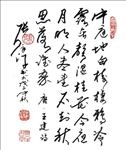 中庭地白樹棲鴉冷
露無聲濕桂花今夜
月明人盡望不知秋
思落誰家 唐 王建詩